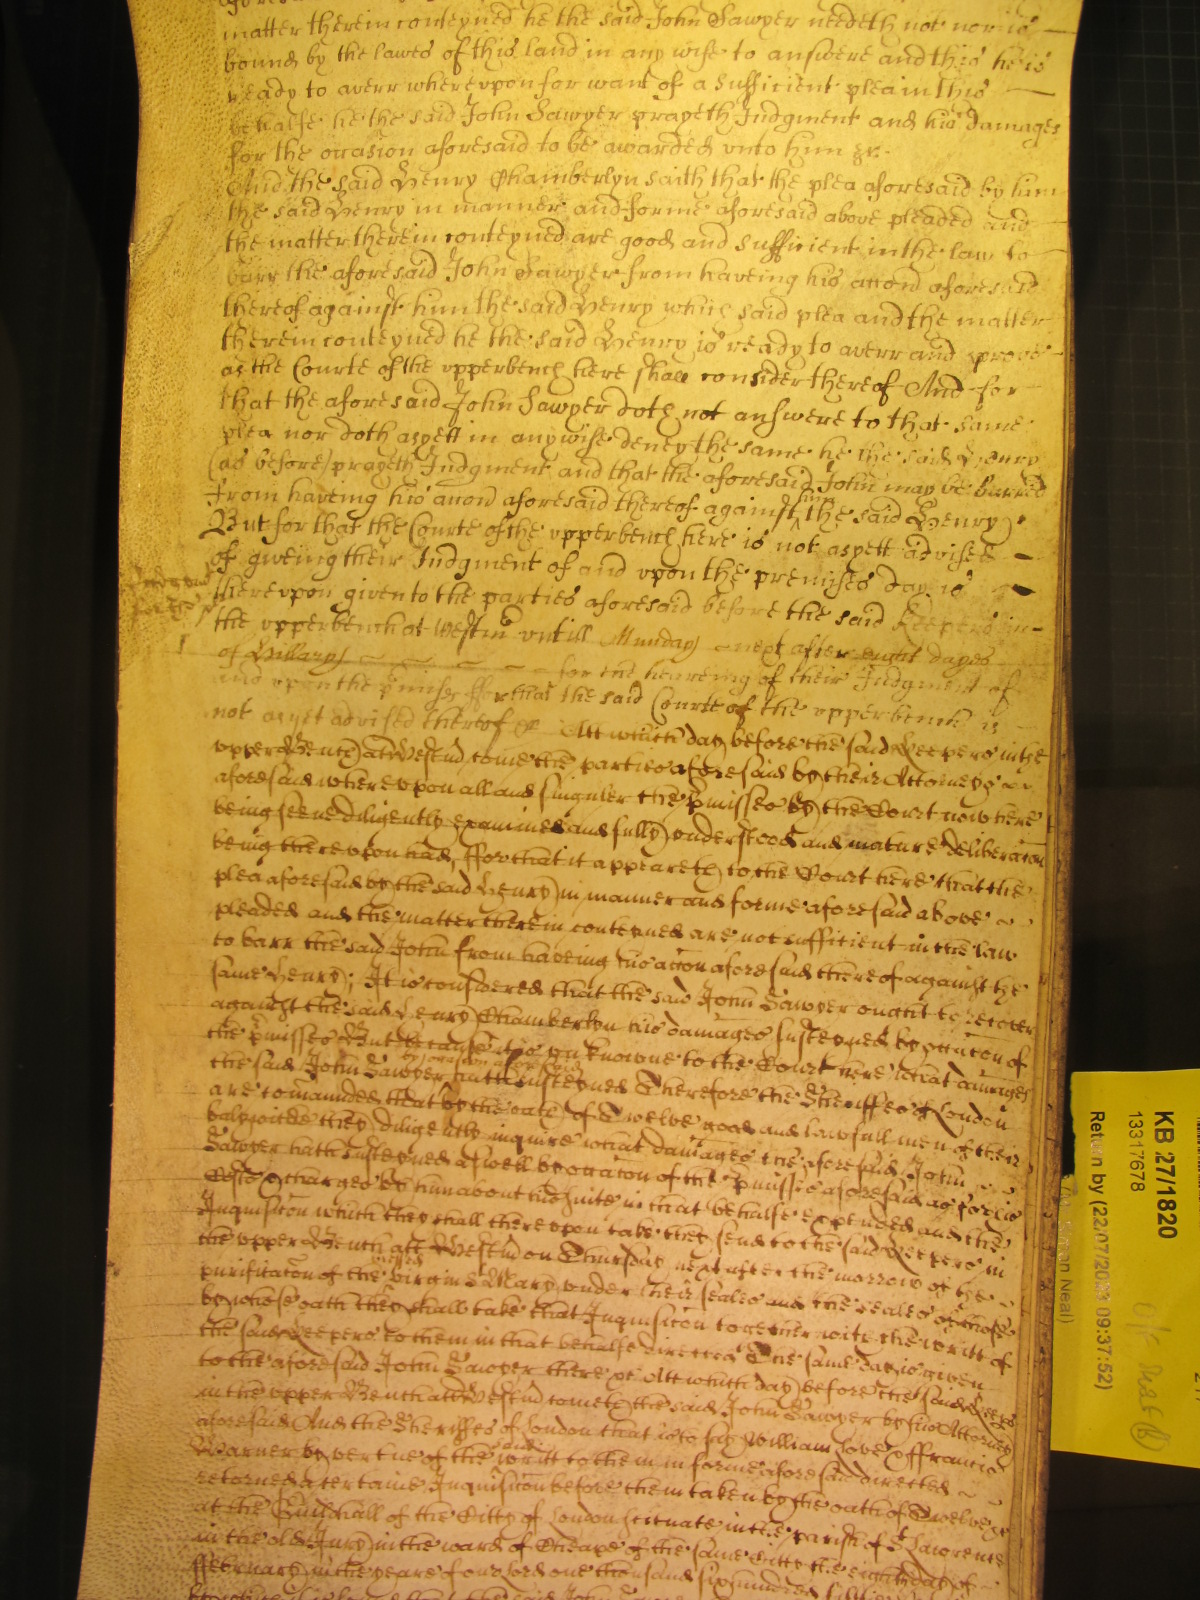 matter therein conteyned he the said John Sawyer needeth not nor is
bound by the lawes of this land in any wise to answere and this he is
ready to averr whereupon for want of a sufficient plea in this
behalfe he the said John Sawyer prayeth Judgment and his damages
for the occasion aforesaid to be awarded unto him &c.
And the said Henry Chamberlyn saith that the plea aforesaid by him
the said Henry in manner and forme aforesaid above pleaded and
the matter therein conteyned are good and sufficient in the law to
barr the aforesaid John Sawyer from haveing his accond aforesaid
thereof against him the said Henry which said plea and the matter
therein conteyned he the said Henry is ready to averr and prove
as the Courte of the upperbench here shall consider thereof And for
that the aforesaid John Sawyer doth not answere to that same
plea nor doth as yett in any wise deney the same he the said Henry
(as before) prayeth Judgment and that the aforesaid John may be barred
from haveing his accond aforesaid thereof against him the said Henry
But for that the Courte of the upperbench here is not as yett advised
of giveing their Judgment of and upon the premises day is
thereupon given to the parties aforesaid before the said Keepers in
the upperbench at Westm untill Munday next after eight dayes
of Hillary for the heareing of their Judgment of
and upon the pmisses for that the said Courte of the upperbench is
not as yet advised thereof &c Att which day before the said Keepers in the
upper Bench att Westm come the parties aforesaid by their Attorneys
aforesaid whereupon all and singuler the pmisses by the Court now here
being seene diligently examined and fully understood and mature deliberacon
being thereupon had, ffor that it appeareth to the Court here that the
plea aforesaid by the said Henry in manner and forme aforesaid above
pleaded and the matter therein conteyned are not sufficient in the law
to barr the said John from haveing his accon aforesaid thereof against the
same Henry; It is considered that the said John Sawyer ought to recover
against the said Henry Chamberlyn his damages susteyned by occacon of
the pmisses But because it is unknowne to the Court here what damages
the said John Sawyer hath susteyned Therefore the Sheriffes of London
are comannded that by the oath of Twelve good and lawfull men of their
baliwicke they diligently inquire what damages the aforesaid John
Sawyer hath susteyned aswell by occacon of the pmisses aforesaid as for his
Costs & charges by him about his suite in that behalfe expended and the
Inquisicon which they shall thereupon take they send to the said Keepers in
the upper Bench att Westm on Thursday next after the morrow of the
purificacon of the blessed virgin Mary under their seales and the seales of those
by whose oath they shall take that Inquisicon together with the writt of
the said Keepers to them in that behalfe directed The same day is given
to the aforesaid John Sawyer there &c Att which day before the said Keeps
in the upper Bench att Westm cometh the said John Sawyer by his Attorney
aforesaid And the Sheriffes of London that is to say William Love & ffrancis
Warner by vertue of the said writt to them in forme aforesaid directed
retorned a certaine Inquisicon before them taken by the oath of Twelve &c
at the Guildhall of the Citty of London scituate in the parish of St Lawrence
in the old Jury in the ward of Cheape of the same Citty the eighth day of
ffebruary in the yeare of our Lord one thousand six hundred
KB 27/1820
13317678
Return by (22/07/2023 09:37:52)